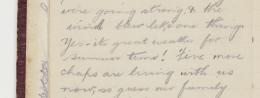 were going strong, & the
wind blew like one thing
Yes its great weather for
summer time! Five more
chaps are living with us
now, so guess our family